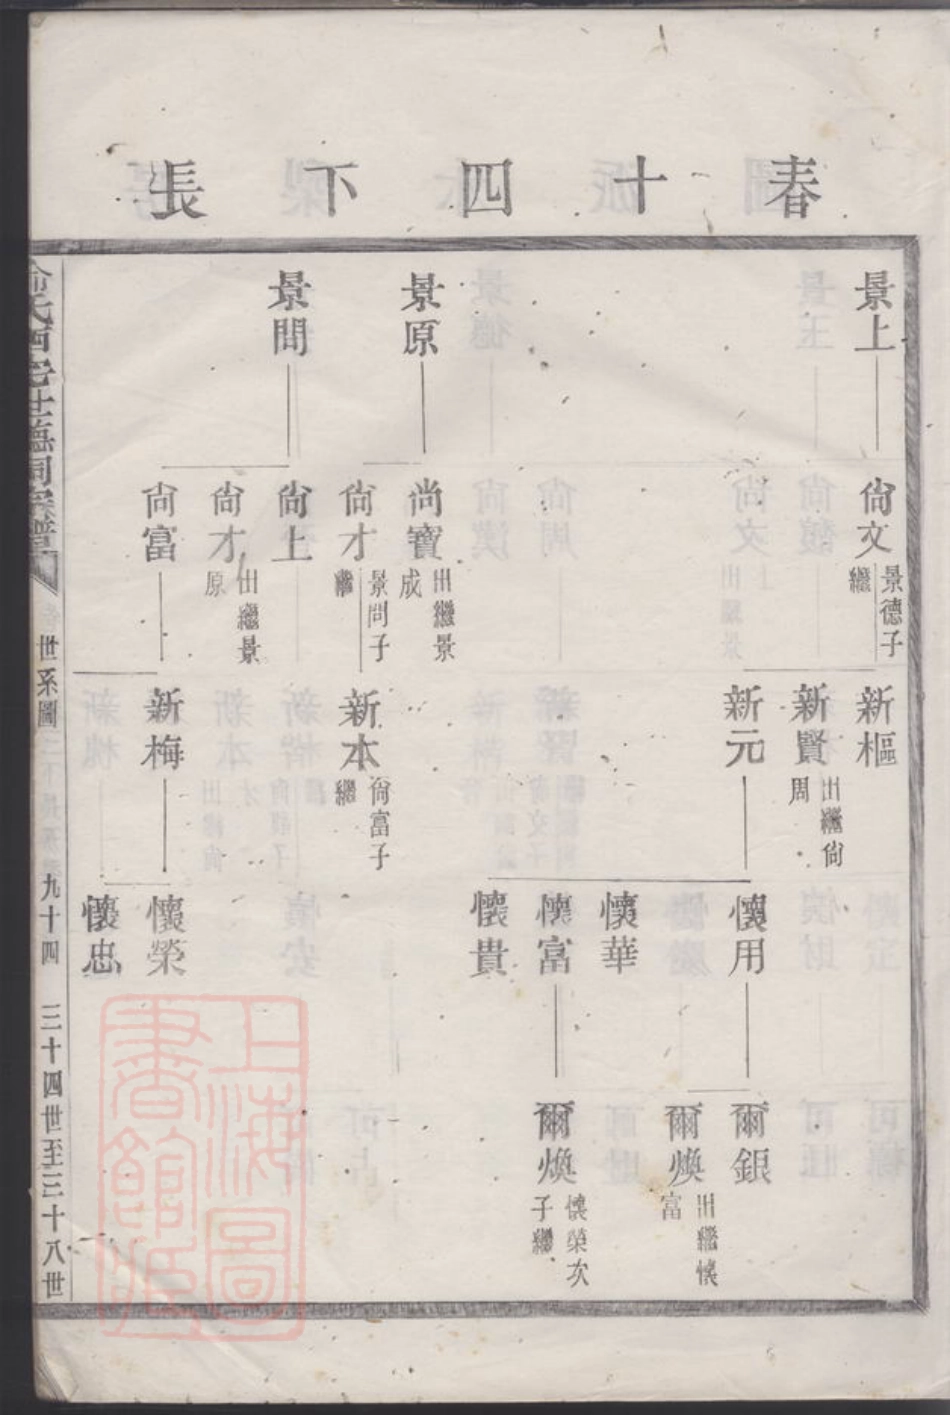 春十四下長
景上
景原
景問
尙文
景德子
繼
尙寶
出繼景
成
尙才
景問子
繼
尙上
尙才
出繼景
原
尙富
新樞
新賢
出繼尙
周
新元
新本
尙富子
繼
新梅
懷用
懷華
懷富
懷貴
懷榮
懷忠
爾銀
爾煥
出繼懷
富
爾煥
懷榮次
子繼
世系圖
九十四
三十四世至三十八世
上海圖
書館藏